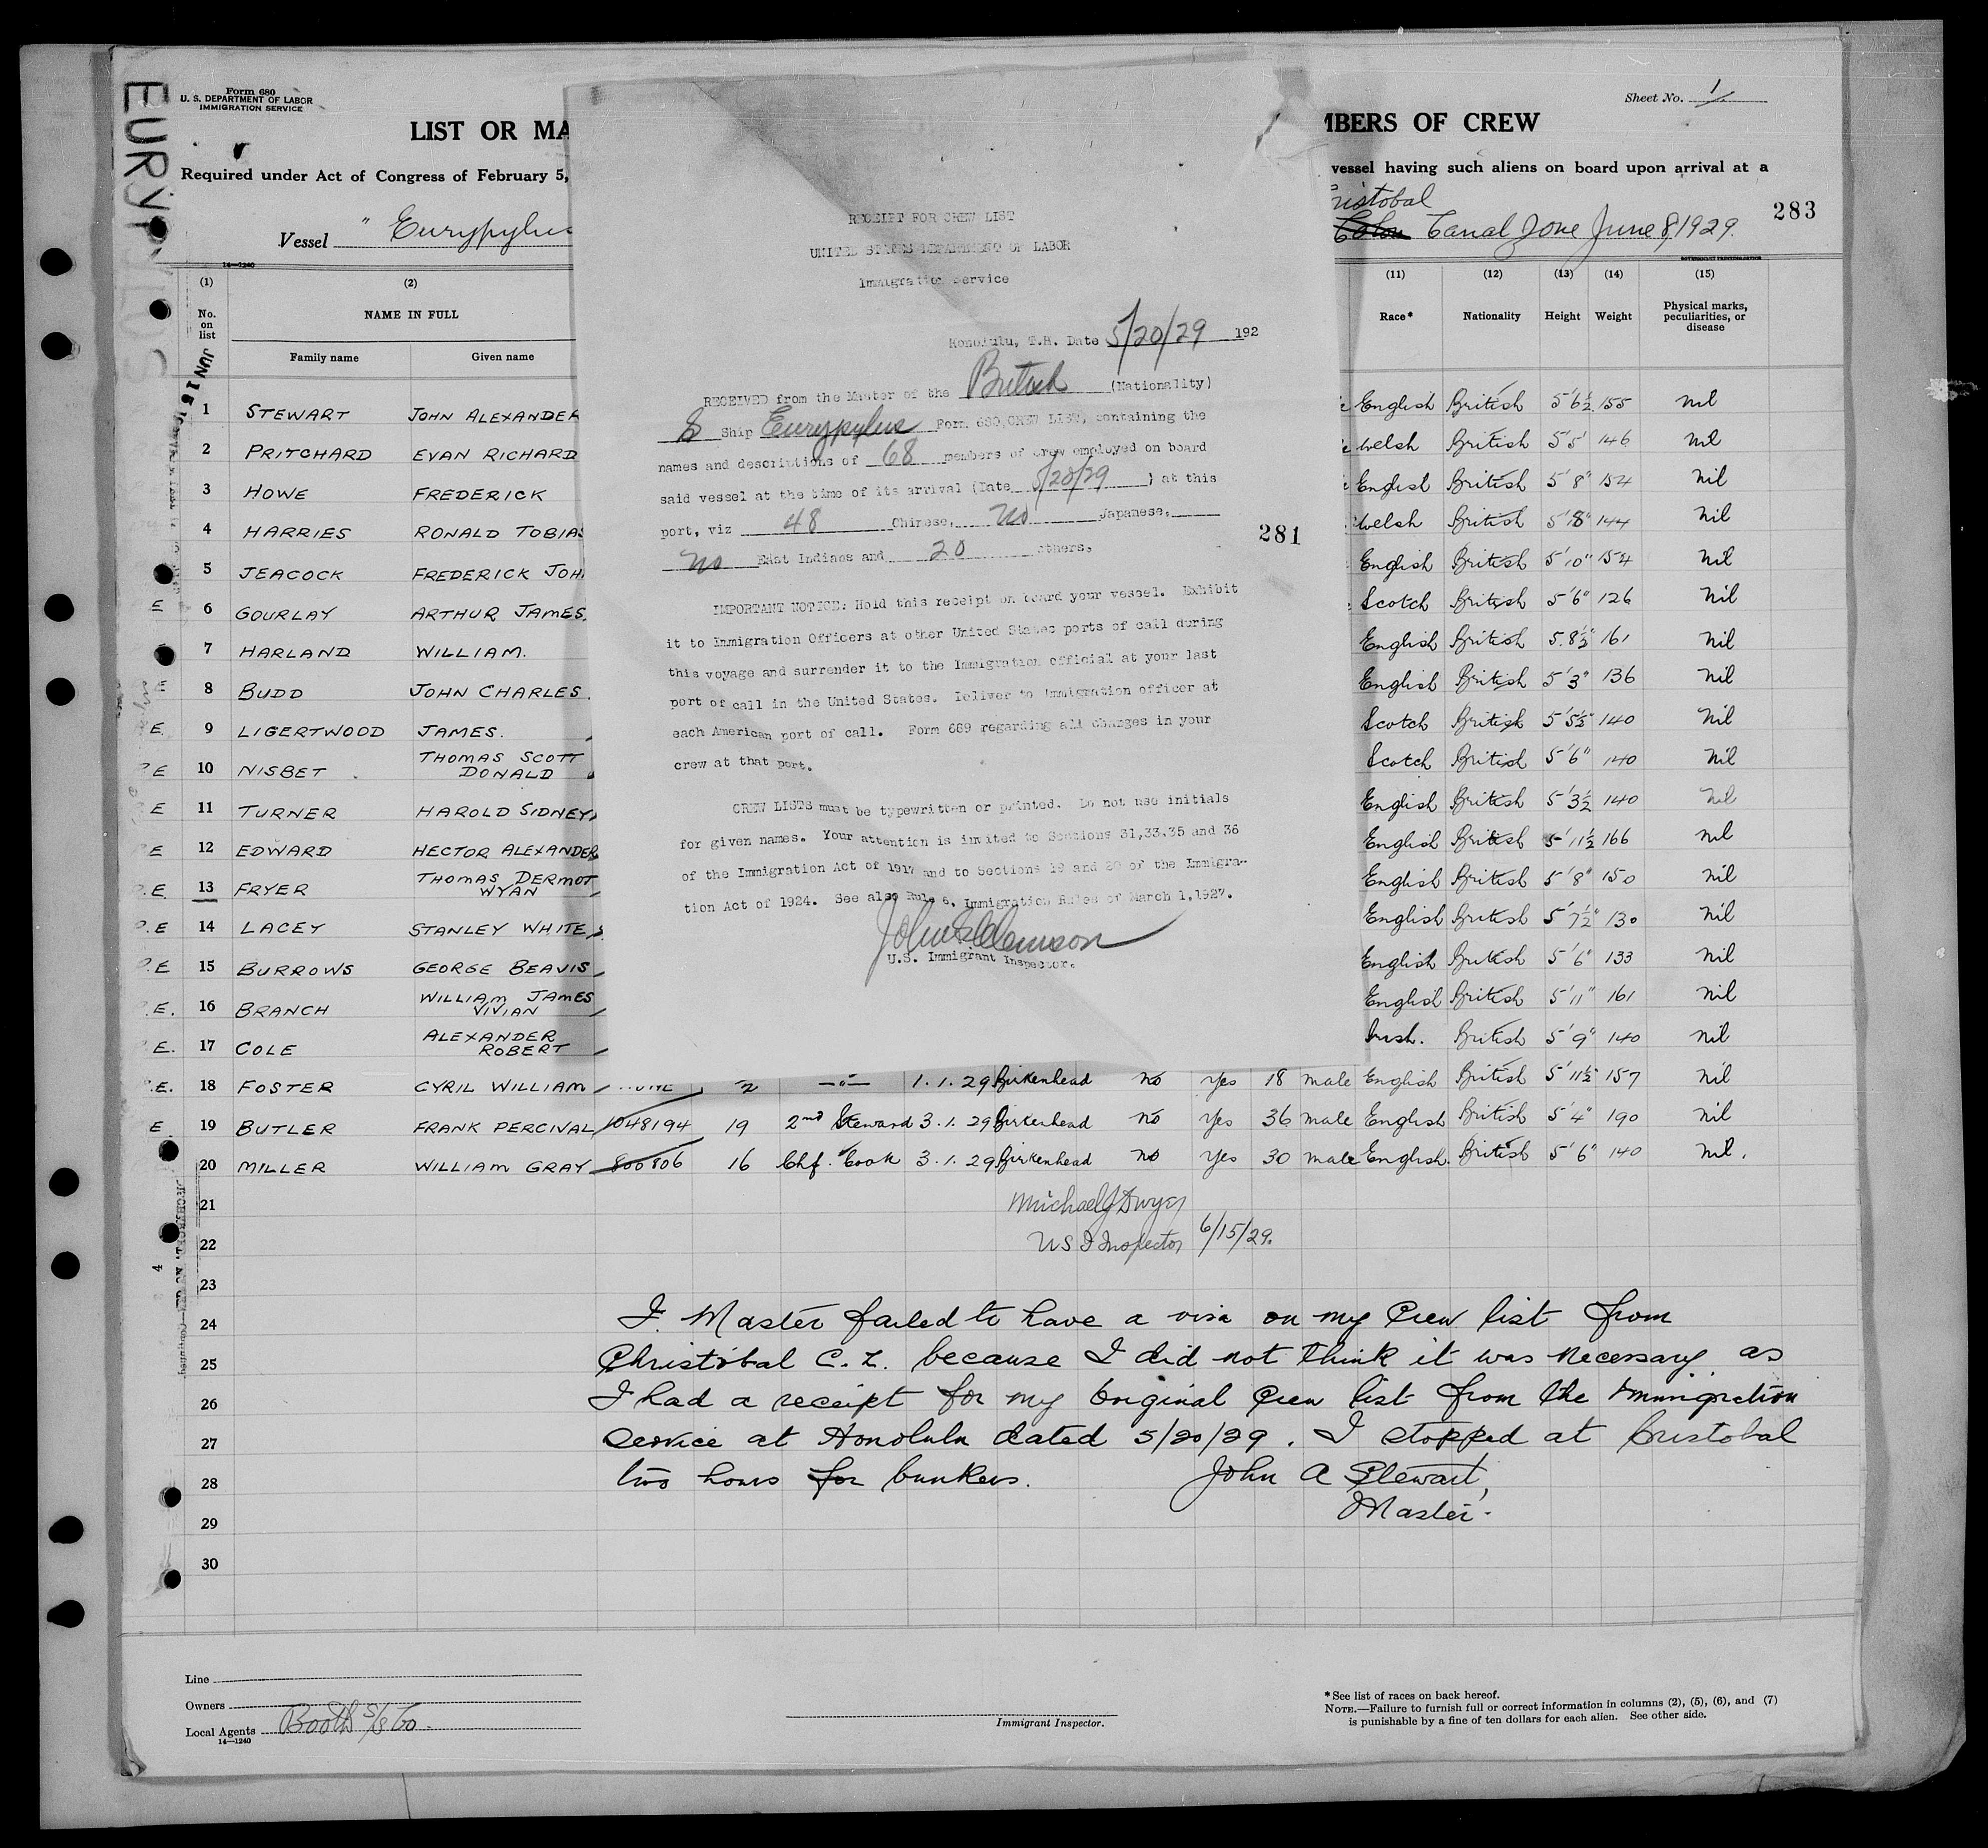 EURYPYLUS
Form 680
U. S. DEPARTMENT OF LABOR
IMMIGRATION SERVICE
Sheet No. 1
LIST OR MA
MBERS OF CREW
Required under Act of Congress of February 5,
vessel having such aliens on board upon arrival at a
Vessel "Eurypylus
ristobal
Colon Canal Zone June 8, 1929.
283
14—1240
(1) (2) (11) (12) (13) (14) (15)
No. on list
NAME IN FULL
Family name Given name
Race* Nationality Height Weight Physical marks, peculiarities, or disease
JUN 15
1 STEWART JOHN ALEXANDER English British 5'6½ 155 nil
2 PRITCHARD EVAN RICHARD Welsh British 5'5" 146 nil
3 HOWE FREDERICK English British 5'8" 154 nil
4 HARRIES RONALD TOBIAS Welsh British 5'8" 144 nil
5 JEACOCK FREDERICK JOH English British 5'10" 154 nil
E 6 GOURLAY ARTHUR JAMES. Scotch British 5'6" 126 nil
7 HARLAND WILLIAM. English British 5.8½" 161 nil
E 8 BUDD JOHN CHARLES. English British 5'3" 136 nil
E. 9 LIGERTWOOD JAMES. Scotch British 5'5½" 140 nil
P E 10 NISBET THOMAS SCOTT DONALD Scotch British 5'6" 140 nil
E 11 TURNER HAROLD SIDNEY English British 5'3½ 140 nil
E 12 EDWARD HECTOR ALEXANDER English British 5'11½ 166 nil
P.E. 13 FRYER THOMAS DERMOT WYAN English British 5'8" 150 nil
P.E 14 LACEY STANLEY WHITE English British 5'7½" 130 nil
P.E 15 BURROWS GEORGE BEAVIS English British 5'6" 133 nil
.E. 16 BRANCH WILLIAM JAMES VIVIAN English British 5'11" 161 nil
E. 17 COLE ALEXANDER ROBERT Irish. British 5'9" 140 nil
.E. 18 FOSTER CYRIL WILLIAM 2 —"— 1.1.29 Birkenhead no yes 18 male English British 5'11½" 157 nil
E. 19 BUTLER FRANK PERCIVAL 1048194 19 2nd Steward 3.1.29 Birkenhead no yes 36 male English British 5'4" 190 nil
20 MILLER WILLIAM GRAY 800806 16 Chf. Cook 3.1.29 Birkenhead no yes 30 male English. British 5'6" 140 nil.
21
22
23
24
25
26
27
28
29
30
Michael J Dwyer
U S I Inspector 6/15/29.
I. Master failed to have a visa on my Crew list from
Christobal C.Z. because I did not think it was necessary as
I had a receipt for my Original Crew list from the Immigration
Service at Honolulu dated 5/20/29. I stopped at Cristobal
two hours for bunkers. John A Stewart,
Master.
Line
Owners
Local Agents Booth S/S Co.
14—1240
Immigrant Inspector.
*See list of races on back hereof.
NOTE.—Failure to furnish full or correct information in columns (2), (5), (6), and (7)
is punishable by a fine of ten dollars for each alien. See other side.
RECEIPT FOR CREW LIST
UNITED STATES DEPARTMENT OF LABOR
Immigration Service
Honolulu, T.H. Date 5/20/29 192
RECEIVED from the Master of the British (Nationality)
S Ship Eurypylus Form 680, CREW LIST, containing the
names and descriptions of 68 members of crew employed on board
said vessel at the time of its arrival (Date 5/20/29 ) at this
port, viz 48 Chinese, no Japanese,
no East Indians and 20 others.
281
IMPORTANT NOTICE: Hold this receipt on board your vessel. Exhibit
it to Immigration Officers at other United States ports of call during
this voyage and surrender it to the Immigration official at your last
port of call in the United States. Deliver to immigration officer at
each American port of call. Form 689 regarding all changes in your
crew at that port.
CREW LISTS must be typewritten or printed. Do not use initials
for given names. Your attention is invited to Sections 31,33,35 and 36
of the Immigration Act of 1917 and to Sections 19 and 20 of the Immigra-
tion Act of 1924. See also Rule 6, Immigration Rules of March 1,1927.
U.S. Immigrant Inspector.